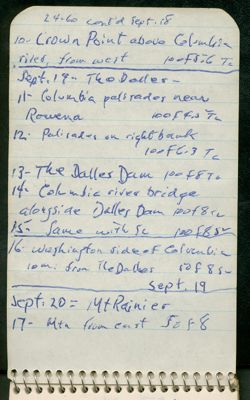 24-60 cont'd Sept. 18
10- Crown Point above Columbia
river, from west 100 F8.6 Tc
Sept. 19 - The Dalles -
11- Columbia palisades near
Rowena 100 F6.3 Tc
12. Palisades on right bank
100 F6.3 Tc
13- The Dalles Dam 100 F8 Tc
14- Columbia river bridge
alongside Dalles Dam 100 F8
15- Same with Sc 100 F8
16. Washington side of Columbia
10 mi. from The Dalles 50 F8
Sept. 19
Sept. 20 = Mt Rainier
17- Mtn from east 50 F8